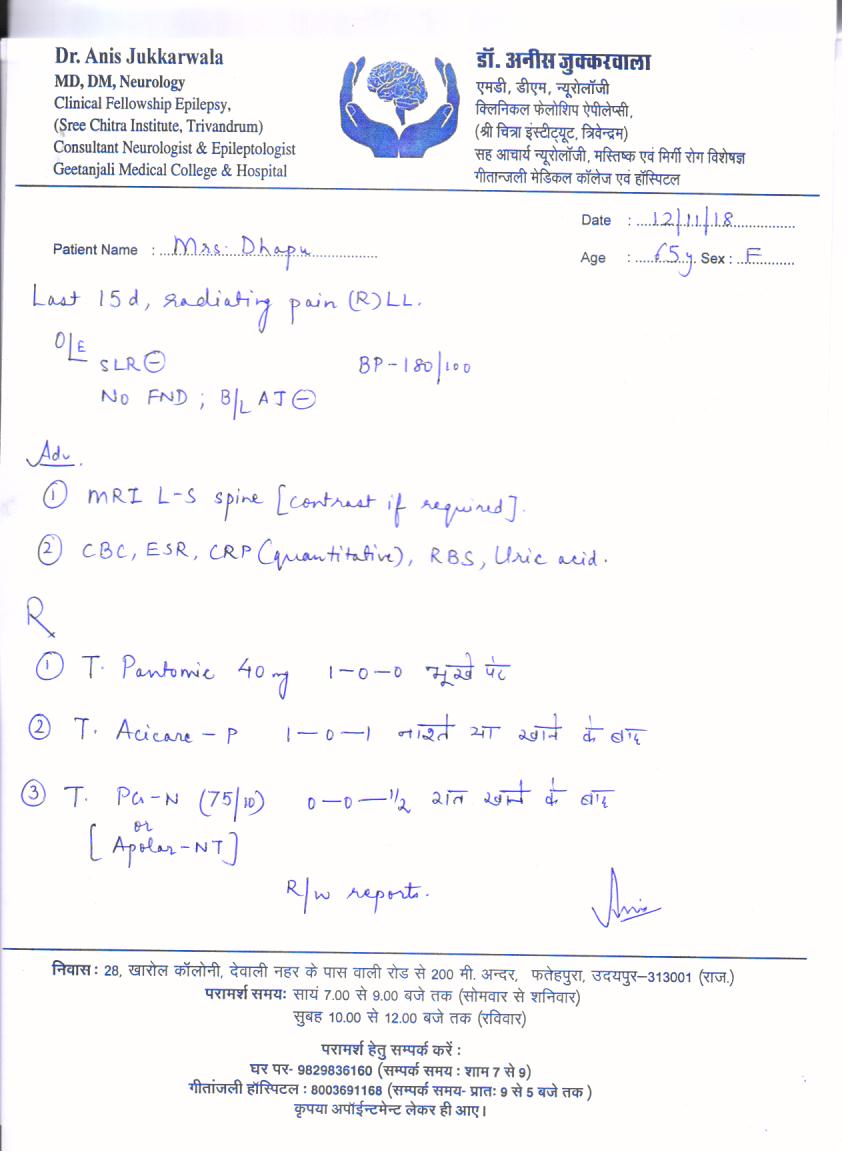 Dr. Anis Jukkarwala
MD, DM, Neurology
Clinical Fellowship Epilepsy,
(Sree Chitra Institute, Trivandrum)
Consultant Neurologist & Epileptologist
Geetanjali Medical College & Hospital
डॉ. अनीस जुक्करवाला
एमडी, डीएम, न्यूरोलॉजी
क्लिनिकल फेलोशिप ऐपीलेप्सी,
(श्री चित्रा इंस्टीट्यूट, त्रिवेन्द्रम)
सह आचार्य न्यूरोलॉजी, मस्तिष्क एवं मिर्गी रोग विशेषज्ञ
गीतान्जली मेडिकल कॉलेज एवं हॉस्पिटल
Date : 12/11/18
Patient Name : Mrs. Dhapu
Age : 65y Sex : F
Last 15d, radiating pain (R) LL.
O/E
SLR ⊖ BP - 180/100
No FND ; B/L AJ ⊖
Adv.
① MRI L-S spine [contrast if required].
② CBC, ESR, CRP (quantitative), RBS, Uric acid.
Rx
① T. Pantomic 40 mg 1-0-0 भूखे पेट
② T. Acicare - P 1-0-1 नाश्ते या खाने के बाद
③ T. PG-N (75/10) 0-0-1/2 रात खाने के बाद
or
[Apolar-NT]
R/w reports.
Anis
निवास : 28, खारोल कॉलोनी, देवाली नहर के पास वाली रोड से 200 मी. अन्दर, फतेहपुरा, उदयपुर-313001 (राज.)
परामर्श समयः सायं 7.00 से 9.00 बजे तक (सोमवार से शनिवार)
सुबह 10.00 से 12.00 बजे तक (रविवार)
परामर्श हेतु सम्पर्क करें :
घर पर- 9829836160 (सम्पर्क समय : शाम 7 से 9)
गीतांजली हॉस्पिटल : 8003691168 (सम्पर्क समय- प्रातः 9 से 5 बजे तक )
कृपया अपॉईन्टमेन्ट लेकर ही आए।